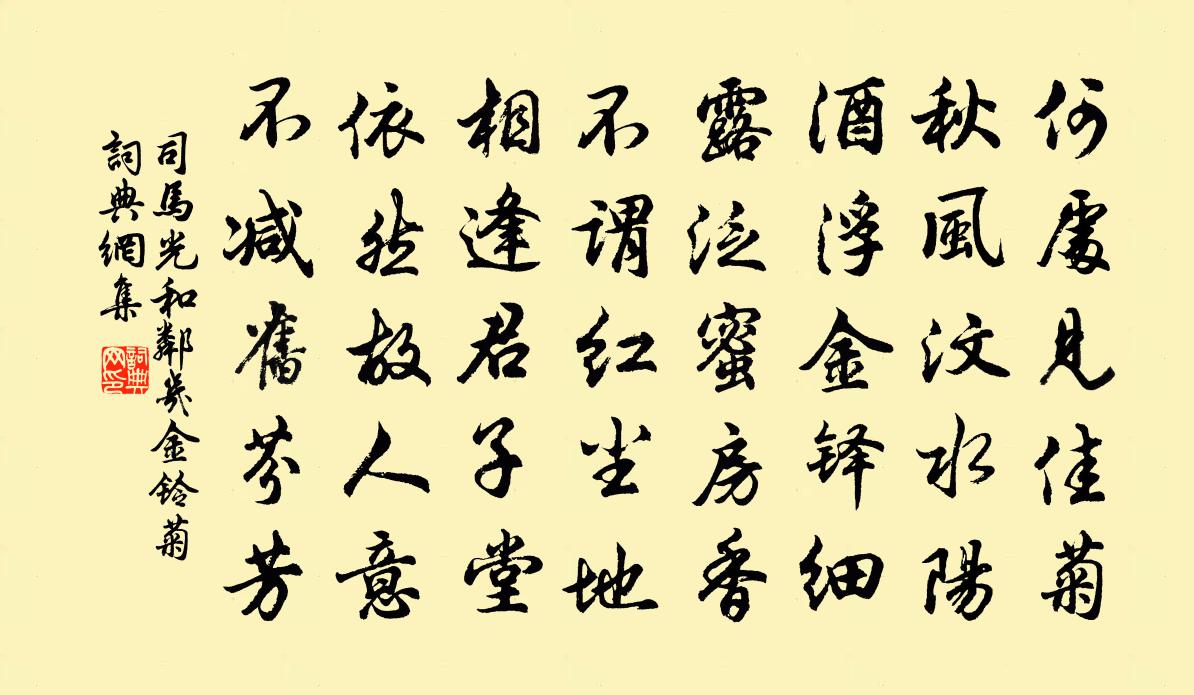 何處見佳菊
秋風汶水陽
酒浮金铎细
露泛蜜房香
不謂红尘地
相逢君子堂
依然故人意
不减舊芬芳
司馬光和鄰幾金铃菊
詞典網集
詞典
网印